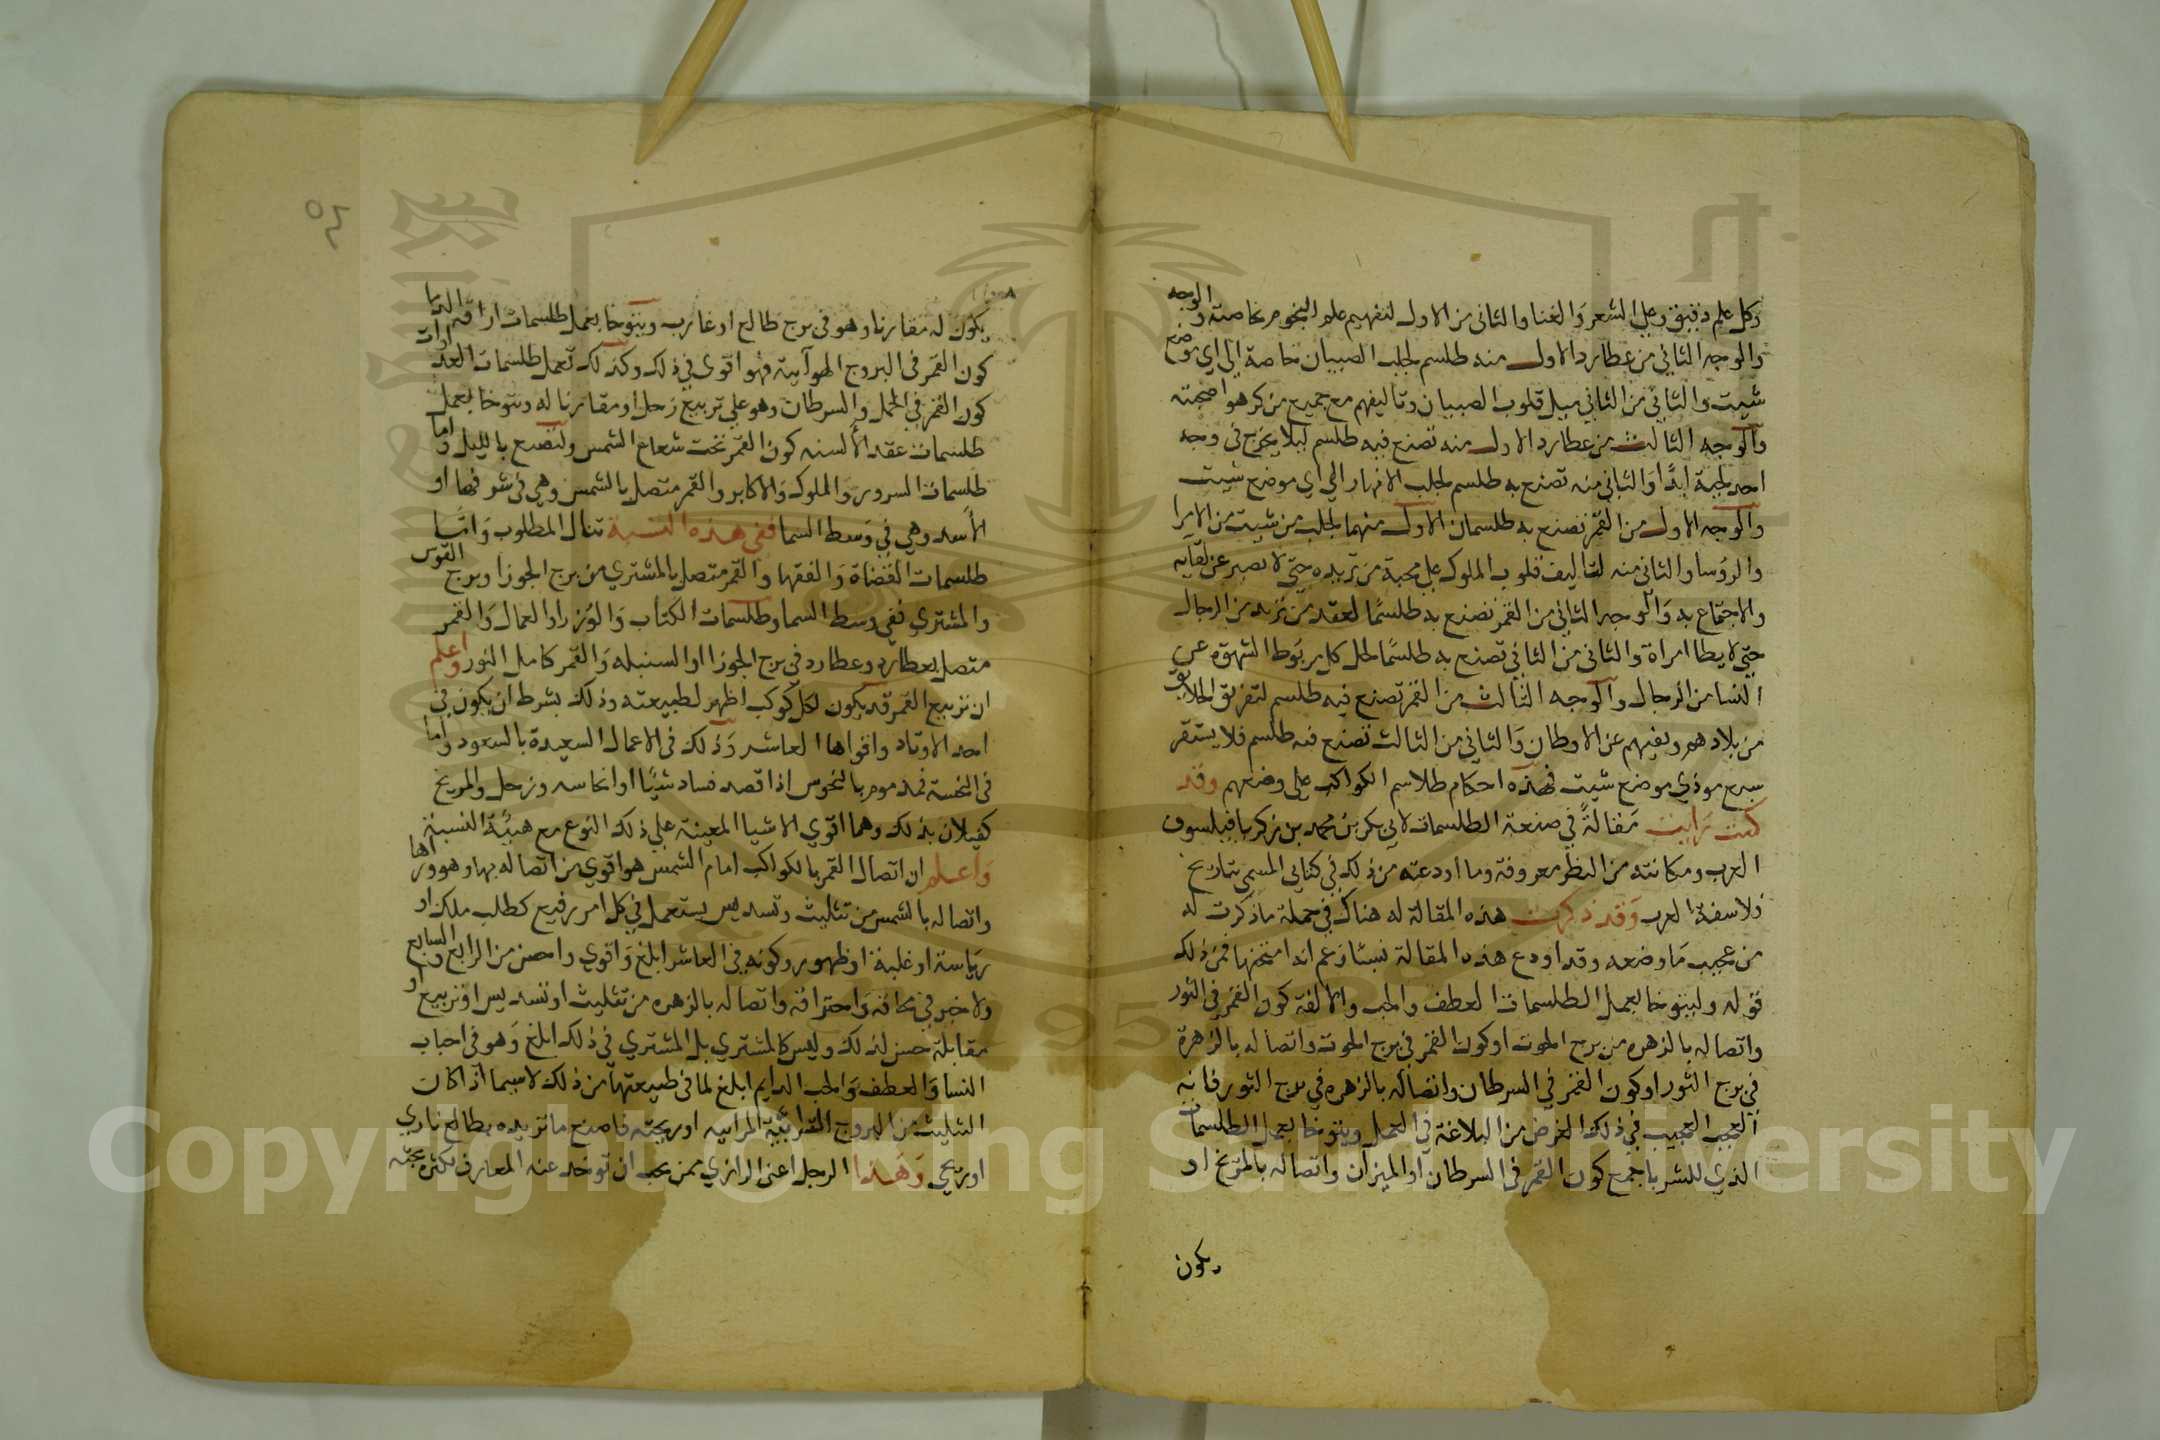 وكل علم دقيق وعلي الشعر والغنا والثاني من الاول لتفهيم علم النجوم خاصة والوجه
والوجه الثاني من عطارد الاول منه طلسم لجلب الصبيان خاصة الي اي موضع
شيت والثاني من الثاني ميل قلوب الصبيان وتاليفهم مع جميع من كرهوا صحبته
والوجه الثالث من عطارد الاول منه تصنع فيه طلسم ليلا يخرج في وجه
احد لحية ابدًا والثاني منه تصنع به طلسم لجلب الانهار الي اي موضع شيت
والوجه الاول من القمر تصنع به طلسمان الاول منهما لجلب من شيت من الامرا
والروسا والثاني منه لتاليف قلوب الملوك علي محبة من تريده حتي لا يصبر عن لقايه
والاجتماع به والوجه الثاني من القمر تصنع به طلسمًا لعقد من تريد من الرجال
حتي لا يطا امراة والثاني من الثاني تصنع به طلسمًا لحل كل مربوط الشهوة عن
النسا من الرجال والوجه الثالث من القمر تصنع فيه طلسم لتفريق الخلايق
من بلادهم ونفيهم عن الاوطان والثاني من الثالث تصنع فيه طلسم فلا يستقر
سبع موذي موضع شيت فهذه احكام طلاسم الكواكب علي وضعهم وقد
كنت رايت مقالةً في صنعة الطلسمات لابي بكر بن محمد بن زكريا فيلسوف
العرب ومكانته من النظر معروفة وما اودعته من ذلك في كتابي المسمي بتاريخ
فلاسفة العرب وقد ذكرت هذه المقالة له هناك في جملة ما ذكرت له
من عجيب ما وضعه وقد اودع هذه المقالة نسبًا زعم انه امتحنها فمن ذلك
قوله ولينوخا بعمل الطلسمات العطف والحب والالفة كون القمر في الثور
واتصاله بالزهره من برج الحوت او كون القمر في برج الحوت واتصاله بالزهرة
في برج الثور او كون القمر في السرطان واتصاله بالزهره في برج الثور فانه
العجب العجيب في ذلك الغرض من البلاغة في العمل وينوخا بعمل الطلسمات
الذي للشر باجمع كون القمر في السرطان او الميزان واتصاله بالمريخ او
يكون
٥٤
يكون له مقارنا وهو في برج طالع او غارب وينوخا بعمل طلسمات اراقة الدما
كون القمر في البروج الهوآيية فهو اقوي في ذلك وكذلك تعمل طلسمات العداوات
كون القمر في الحمل والسرطان وهو علي تربيع زحل او مقارنا له وينوخا بعمل
طلسمات عقد الألسنه كون القمر تحت شعاع الشمس ولتصنع بالليل واما
طلسمات السرور والملوك والاكابر والقمر متصل بالشمس وهي في شرفها او
الأسد وهي في وسط السما ففي هذه النسبة تنال المطلوب وامّا
طلسمات القضاة والفقها والقمر متصل بالمشتري من برج الجوزا وبرج القوس
والمشتري ففي وسط السما وطلسمات الكتاب والوزرا والعمال والقمر
متصل بعطارد وعطارد في برج الجوزا او السنبله والقمر كامل النور واعلم
ان تربيع القمر قد يكون لكل كوكب اظهر لطبيعته وذلك بشرط ان يكون في
احد الاوتاد واقواها العاشر وذلك في الاعمال السعيدة بالسعود واما
في النحسة فمذموم بالنحوس اذا قصد فساد شيًّا او انحاسه وزحل والمريخ
كفيلان بذلك وهما اقوي الاشيا المعينة علي ذلك النوع مع هيئة النسبة
واعلم ان اتصال القمر بالكواكب امام الشمس هو اقوي من اتصاله بها وهو وراها
واتصاله بالشمس من تثليث وتسديس يستعمل في كل امر رفيع كطلب ملك او
رياسة او غلبة او ظهور وكونه في العاشر ابلغ واقوي واحسن من الرابع والسابع
ولا خير في محاقه واحتراقه واتصاله بالزهره من تثليث او تسديس او تربيع او
مقابلة حسن لذلك وليس كالمشتري بل المشتري في ذلك ابلغ وهو في احباب
النسا والعطف والحب الدايم ابلغ لما في طبيعتها من ذلك لا سيما اذا كان
التثليث من البروج الترابية المراييه او ريحيه فاصنع ما تريده بطالع ناري
او ريحي وهذا الرجل اعني الرازي ممن يجب ان توخذ عنه المعارف لكثرة بحثه